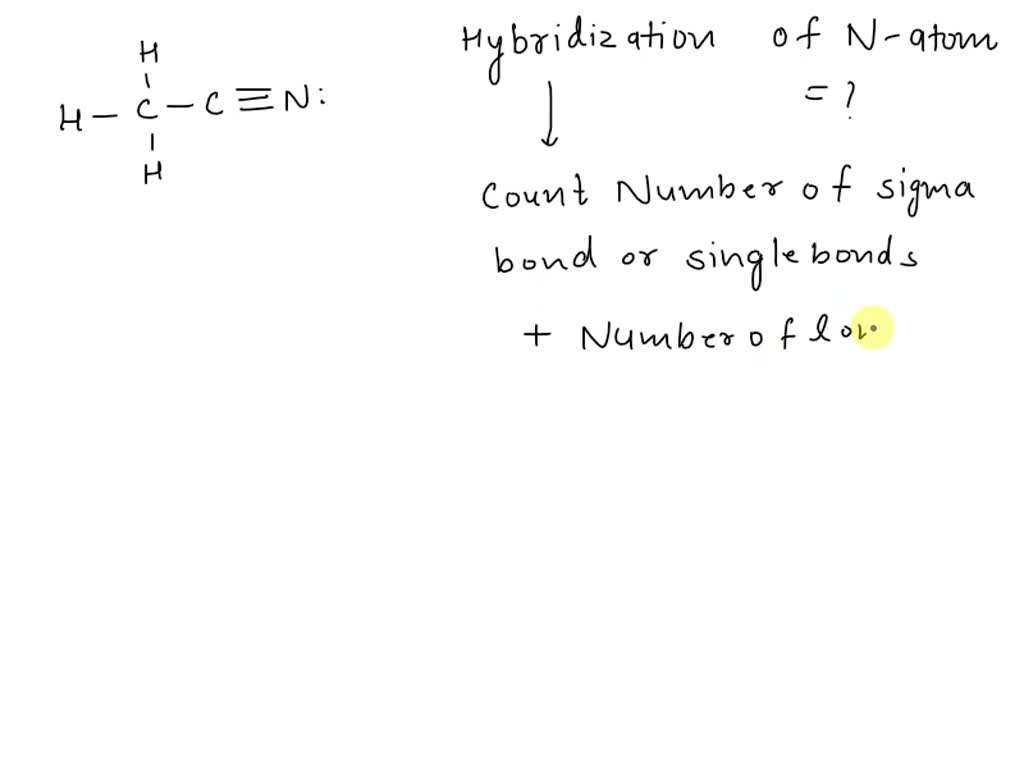 H
H - C - C ≡ N:
H
Hybridization of N-atom
= ?
Count Number of sigma
bond or single bonds
+ Number of lon